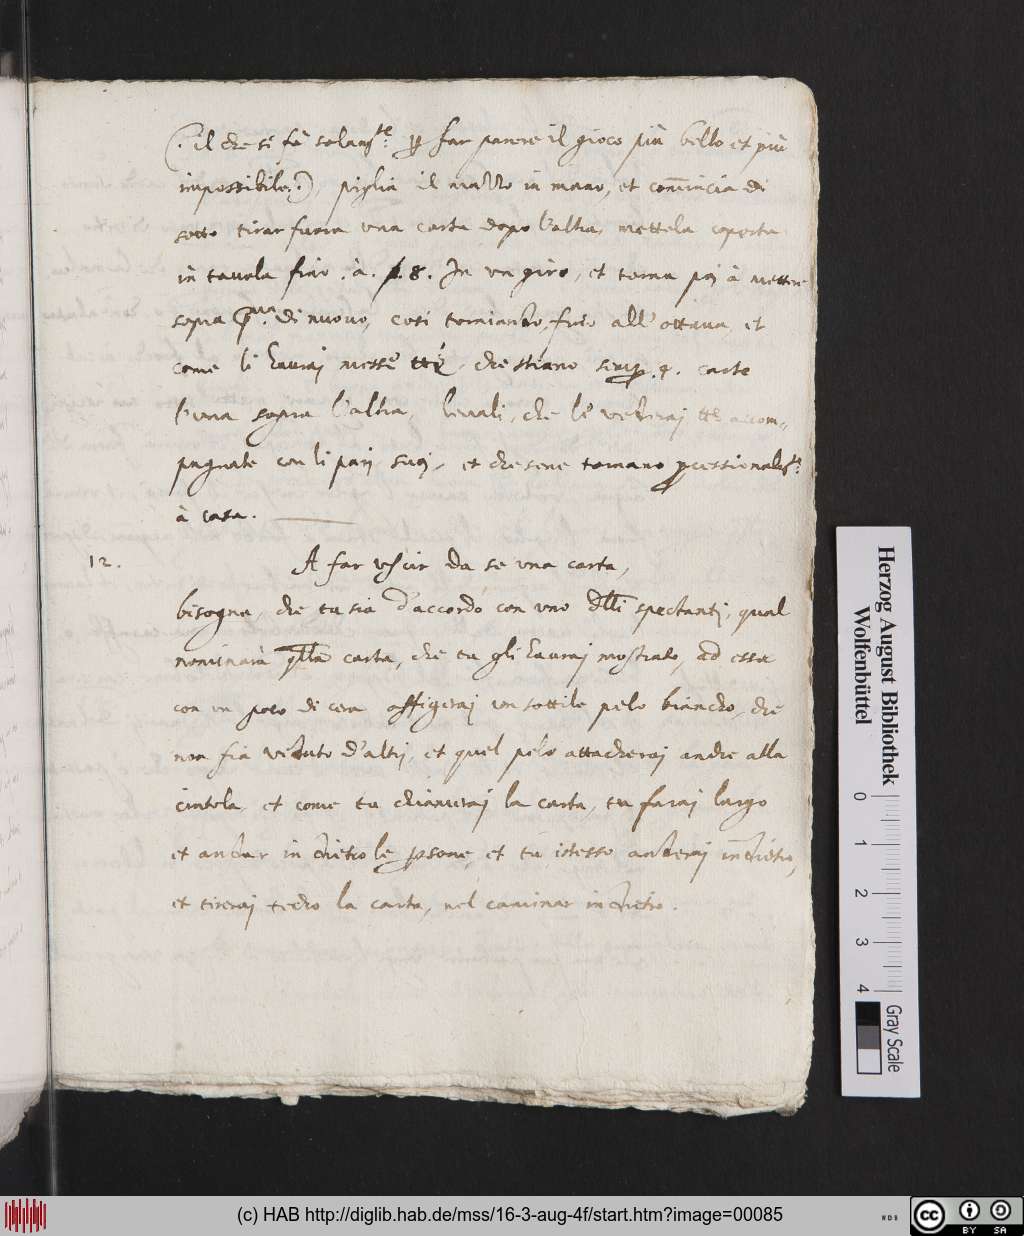 (. il che si fà solam.te p far parere il gioco più bello et più
impossibile.) piglia il mazzo in mano, et comincia di
sotto tirar fuora una carta dopo l'altra, mettela coperta
in tauola fino .à. 8. In un giro, et torna poi à mettere
sopra p.ma di nuouo, cosi tornianto, fino all' ottaua, et
come le hauraj messe tte, che stiano semp 4. carte
l'una sopra l'altra, leuali, che le vederaj tte accom-
pagnate con li parj suoj, et che sene tornano pcessionalm.te
à casa.
12.
A far vscir da se vna carta,
bisogna, che tu sia d'accordo con vno dlli spectantj, qual
nominarà qlla carta, che tu gli hauraj mostrato, ad essa
con un poco di cera affigeraj un sottile pelo biancho, che
non sia veduto d'altrj, et quel pelo attacheraj anche alla
cintola, et come tu chiameraj la carta, tu faraj largo
et andar in dietro le psone, et tu istesso anderaj in dietro,
et tireraj techo la carta, nel caminar in dietro.
Herzog August Bibliothek
Wolfenbüttel
0 1 2 3 4
Gray Scale
(c) HAB http://diglib.hab.de/mss/16-3-aug-4f/start.htm?image=00085
WDB
cc
BY SA